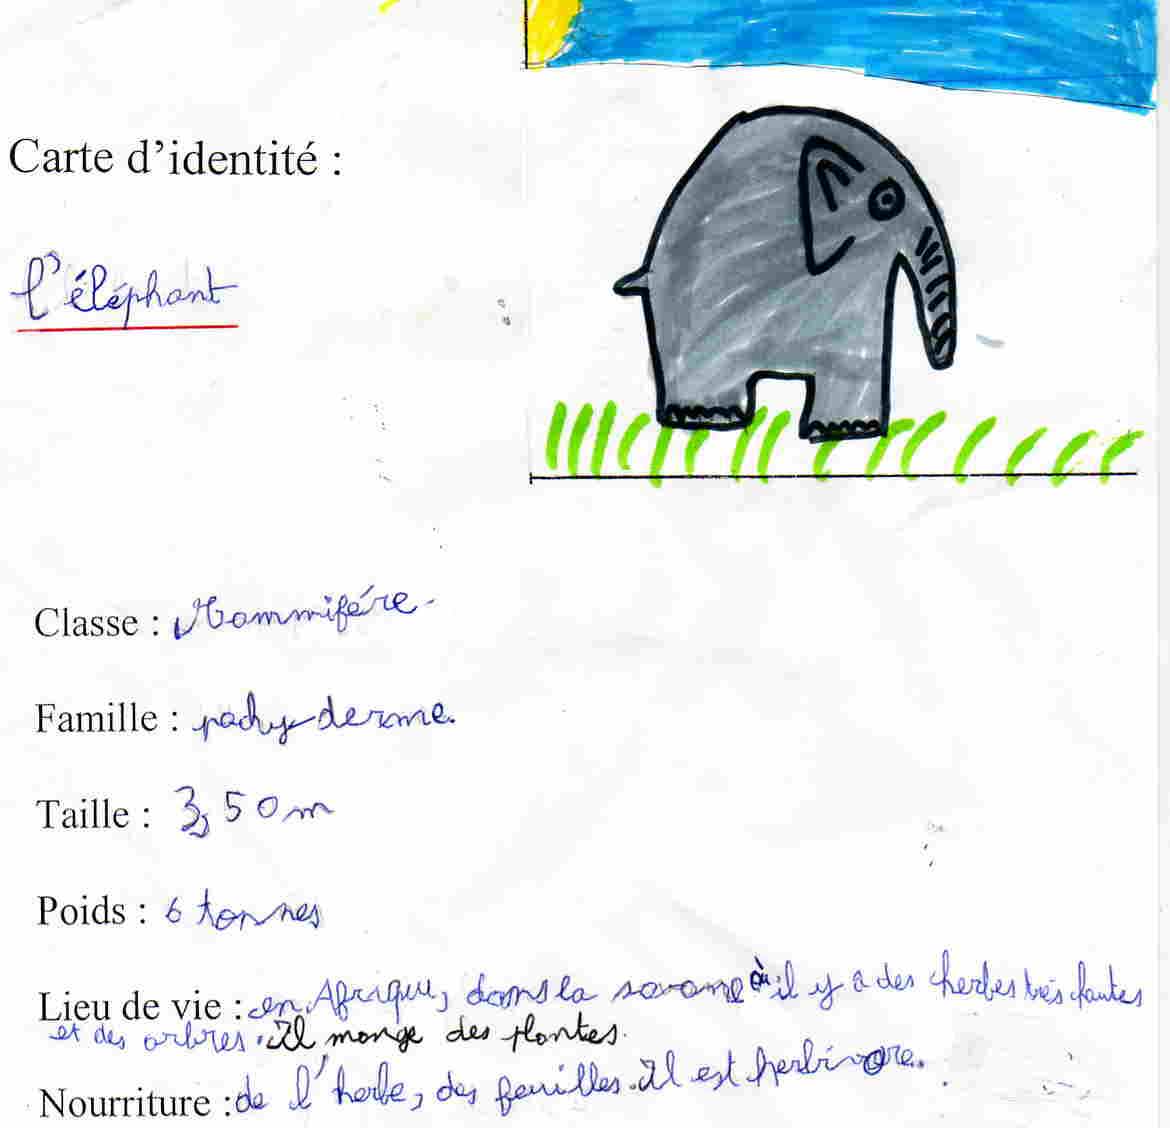 Carte d'identité :
l'éléphant
Classe : Mammifére.
Famille : pachyderme.
Taille : 3,50m
Poids : 6 tonnes
Lieu de vie : en Afrique, dans la savane où il y a des herbes très hautes
et des arbres. Il mange des plantes.
Nourriture : de l'herbe, des feuilles. Il est herbivore.